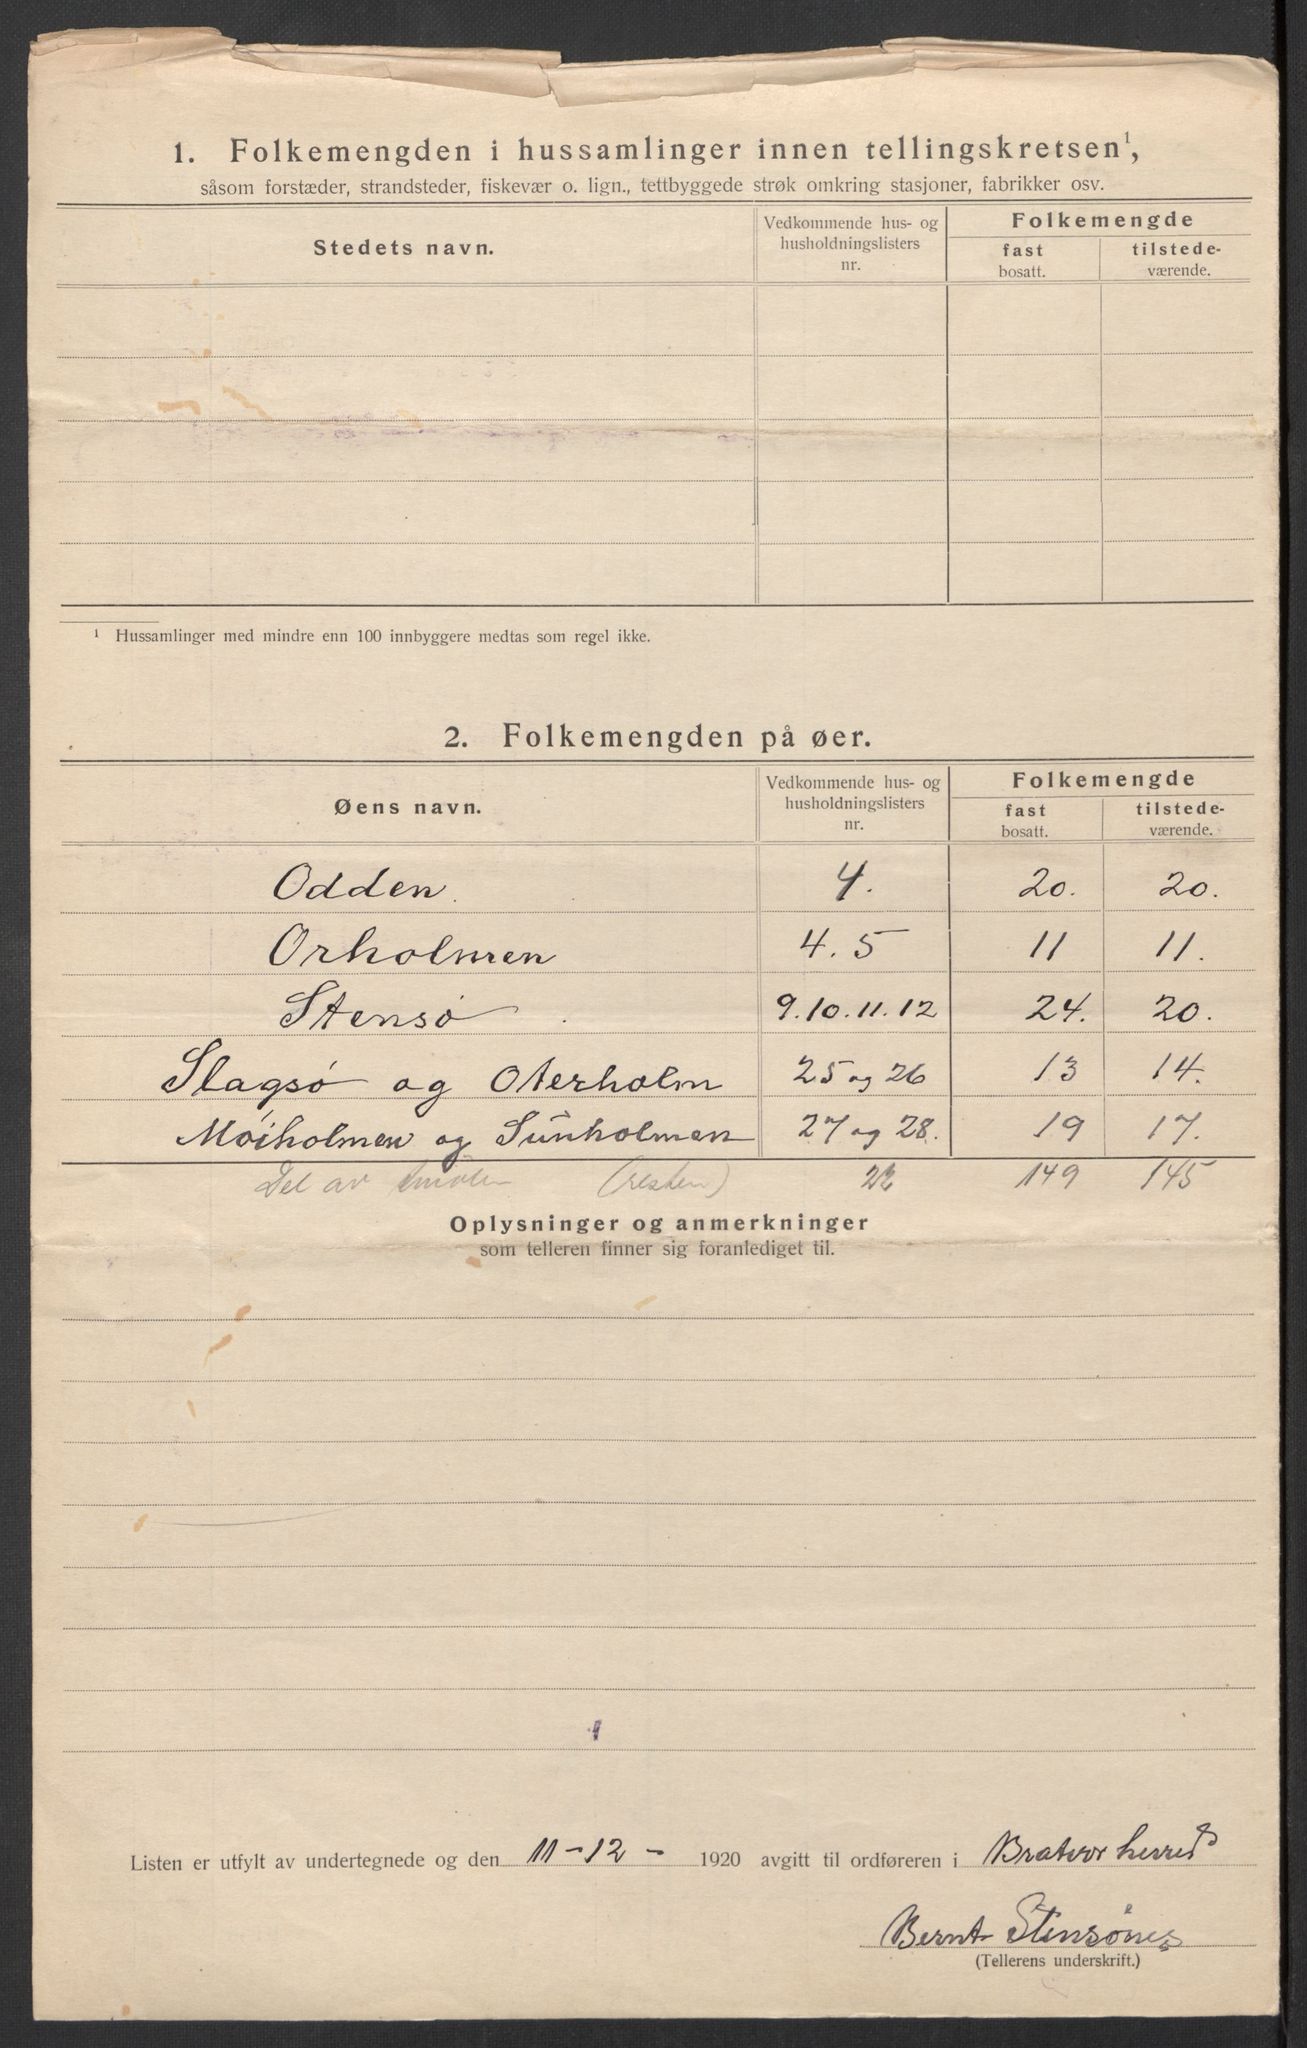 1. Folkemengden i hussamlinger innen tellingskretsen¹,
såsom forstæder, strandsteder, fiskevær o. lign., tettbyggede strøk omkring stasjoner, fabrikker osv.
Stedets navn.
Vedkommende hus- og husholdningslisters nr.
Folkemengde
fast bosatt.
tilstede-værende.
¹ Hussamlinger med mindre enn 100 innbyggere medtas som regel ikke.
2. Folkemengden på øer.
Øens navn.
Vedkommende hus- og husholdningslisters nr.
Folkemengde
fast bosatt.
tilstede-værende.
Odden. 4. 20. 20.
Orholmen 4. 5 11 11.
Stensø 9. 10. 11. 12 24. 20.
Slagsø og Oterholm 25 og 26 13 14.
Moiholmen og Sünholmen 27 og 28. 19 17.
Del av Smölen (resten) 149 145
Oplysninger og anmerkninger
som telleren finner sig foranlediget til.
Listen er utfylt av undertegnede og den 11-12- 1920 avgitt til ordføreren i Bratvær herred
Bernt Stensønes
(Tellerens underskrift.)